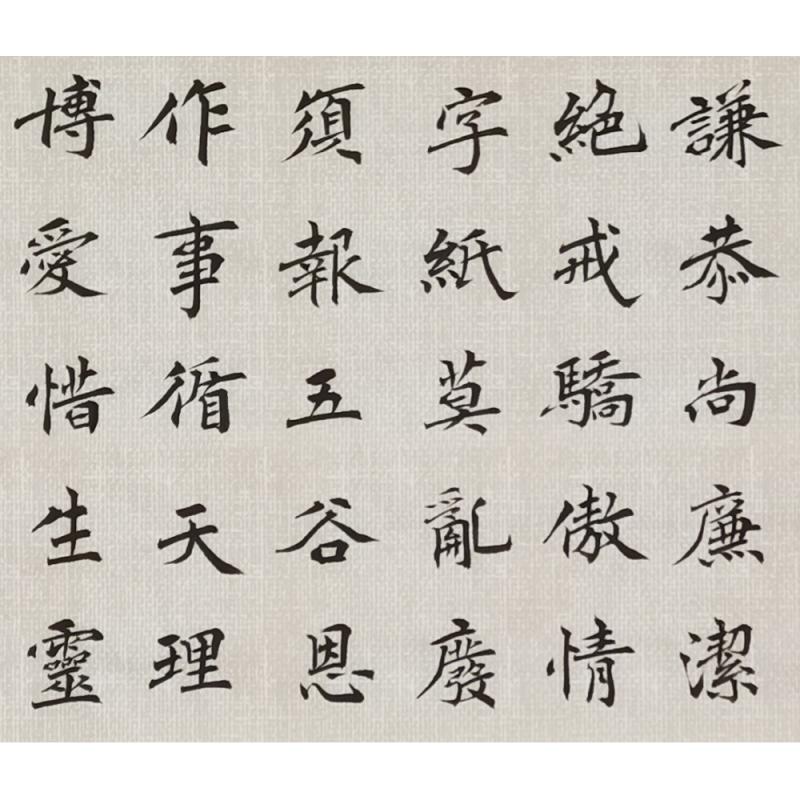 謙恭尚廉潔
絕戒驕傲情
字紙莫亂廢
須報五谷恩
作事循天理
博愛惜生靈